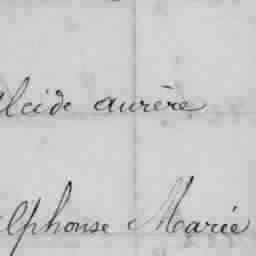 Alcide aurère
Alphonse Marié